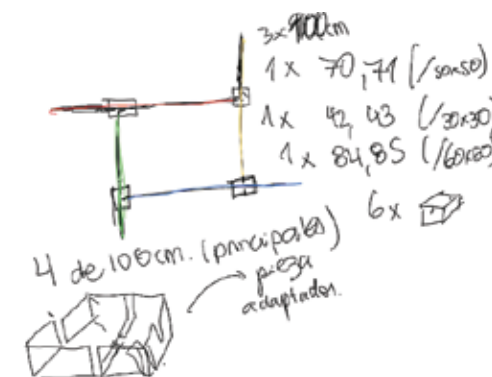 3x 100cm
1x 70,71 (/50x50)
1x 42,43 (/30x30)
1x 84,85 (/60x60)
6x
4 de 100cm. (principales)
pieza
adaptador.